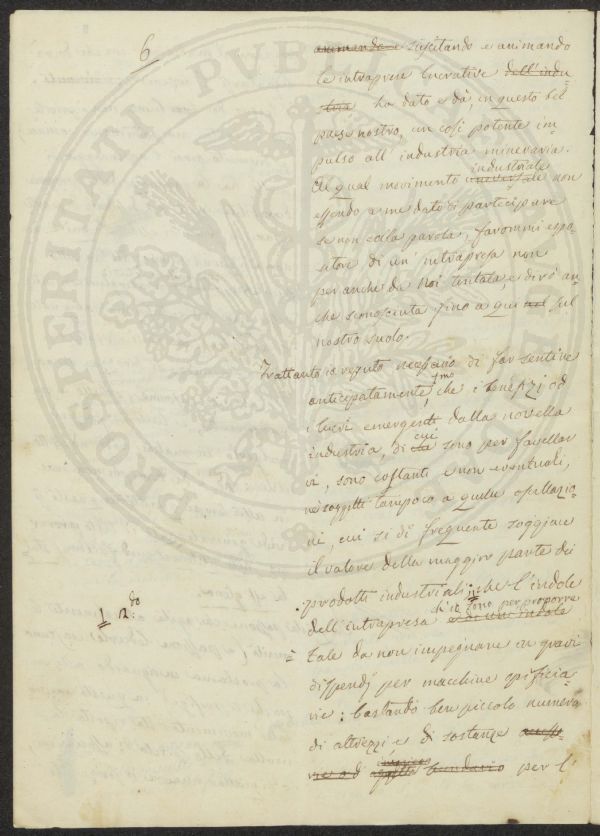 6
animando e suscitando e animando
le intraprese lucrative dell'indu-
stria ha dato e dà, in questo bel
paese nostro, un così potente im-
pulso all'industria mineraria.
Al qual movimento universale industriale non
essendo a me dato di participare
se non colla parola, farommi espo-
sitore di un'intrapresa non
per anche da Noi tentata, e dirò an-
che sconosciuta fino a qui nel sul
nostro suolo.
Trattanto io reputo necessario di far sentire
anticipatamente, 1mo che i benefizj od
i lucri emergenti dalla novella
industria, di che cui sono per favellar
vi, sono costanti e non eventuali,
nè soggetti tampoco a quelle oscillazio-
ni, cui si di frequente soggiace
il valore della maggior parte dei
prodotti industriali: che l'indole
1 2:do
dell'intrapresa ch'io sono per proporre è di una indole
= tale da non impegnare in gravi
dispendj per macchine opificia-
rie: bastando ben piccolo numero
di attrezzi, e di sostanze
per l'